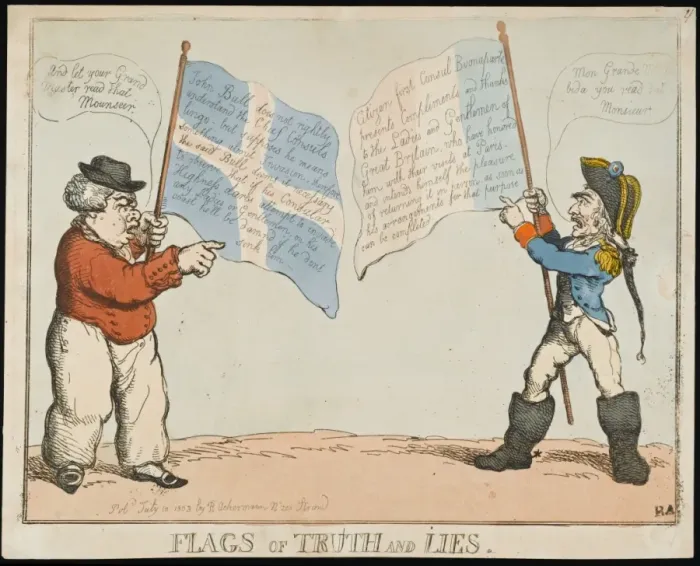 and let your Grand
Master read that
Mounseer.
John Bull does not rightly
understand the Chief Consuls
lingo, but supposes he means
something about Invasion, therefore
the said Bull
to observe that if his Consular
Highness dares attempt to
any Ladies or Gentlemen on his
Coast he'll be damn'd if he dont
sink him.
Citizen first Consul Buonaparte
presents Compliments and thanks
to the Ladies and Gentlemen of
Great Brytain, who have honored
him with their visits at Paris.
and intends himself the pleasure
of returning it in person as soon as
his arrangements for that purpose
can be completed
Mon Grande
bids you read dat
Monsieur
Pub.d July 10 1803 by R Ackermann N.o 101 Strand
FLAGS OF TRUTH AND LIES.
RA